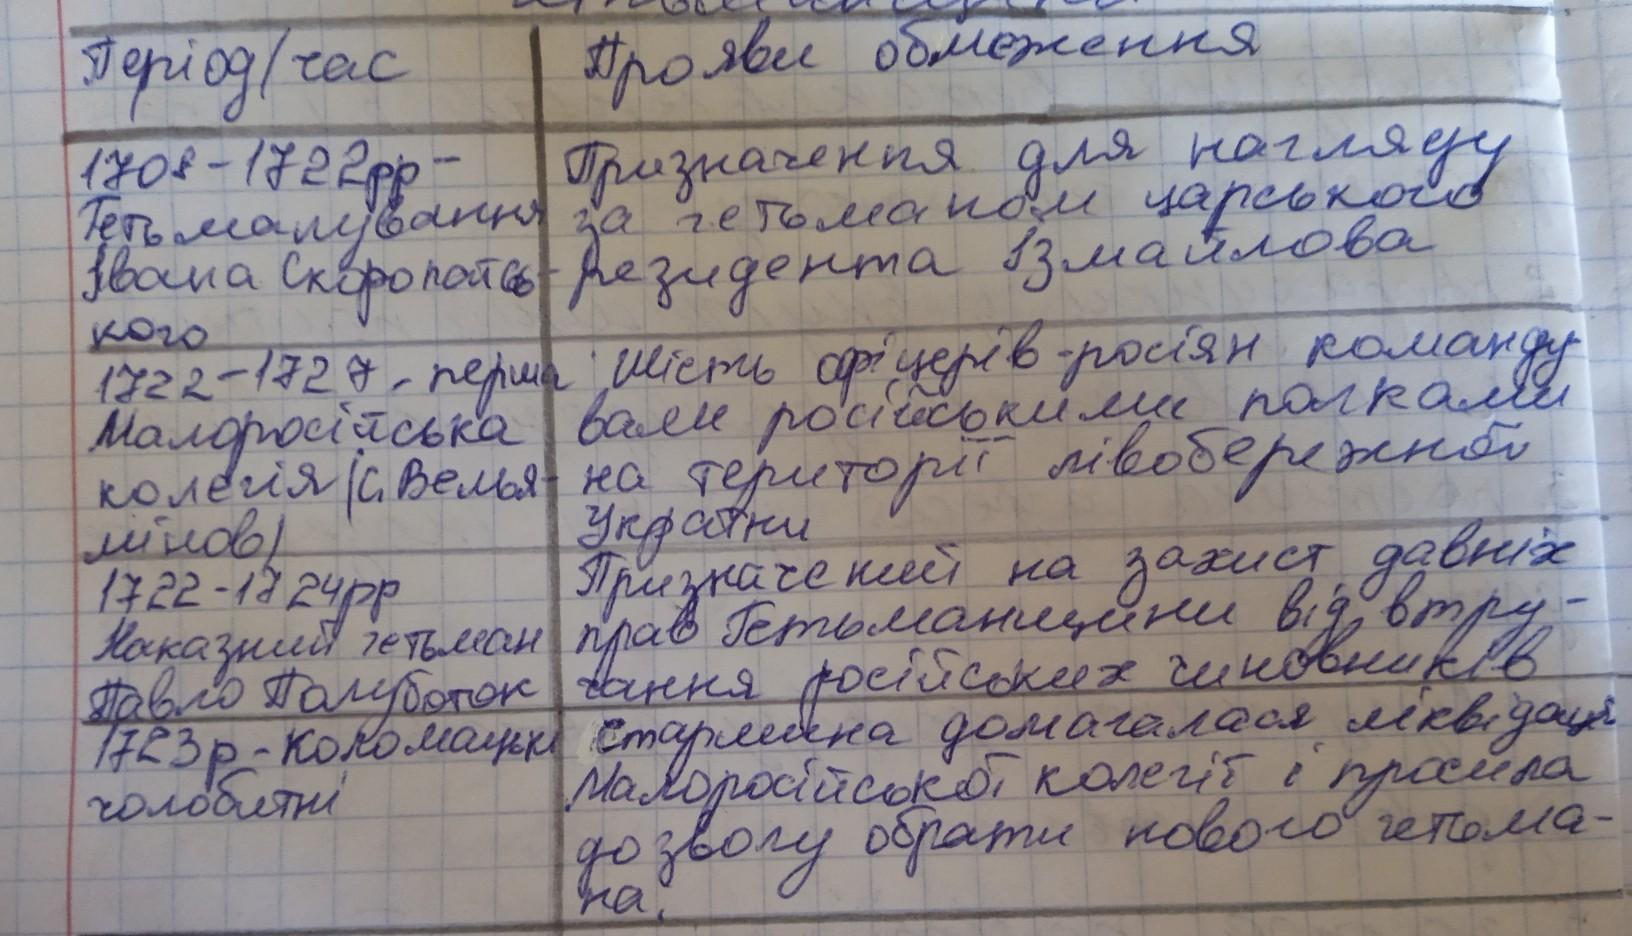 Період/час
Прояви обмеження
1708-1722рр-
Гетьманування
Івана Скоропадсь-
кого
Призначення для нагляду
за гетьманом царського
резидента Ізмайлова
1722-1727 - перша
Малоросійська
колегія (С. Велья-
мінов)
Шість офіцерів-росіян команду
вали російськими полками
на території лівобережної
України
1722-1724рр
Наказний гетьман
Павло Полуботок
Призначений на захист давніх
прав Гетьманщини від втру-
чання російських чиновників
1723р - Коломацькі
чолобитні
Старшина домагалася ліквідації
Малоросійської колегії і просила
дозволу обрати нового гетьма-
на.